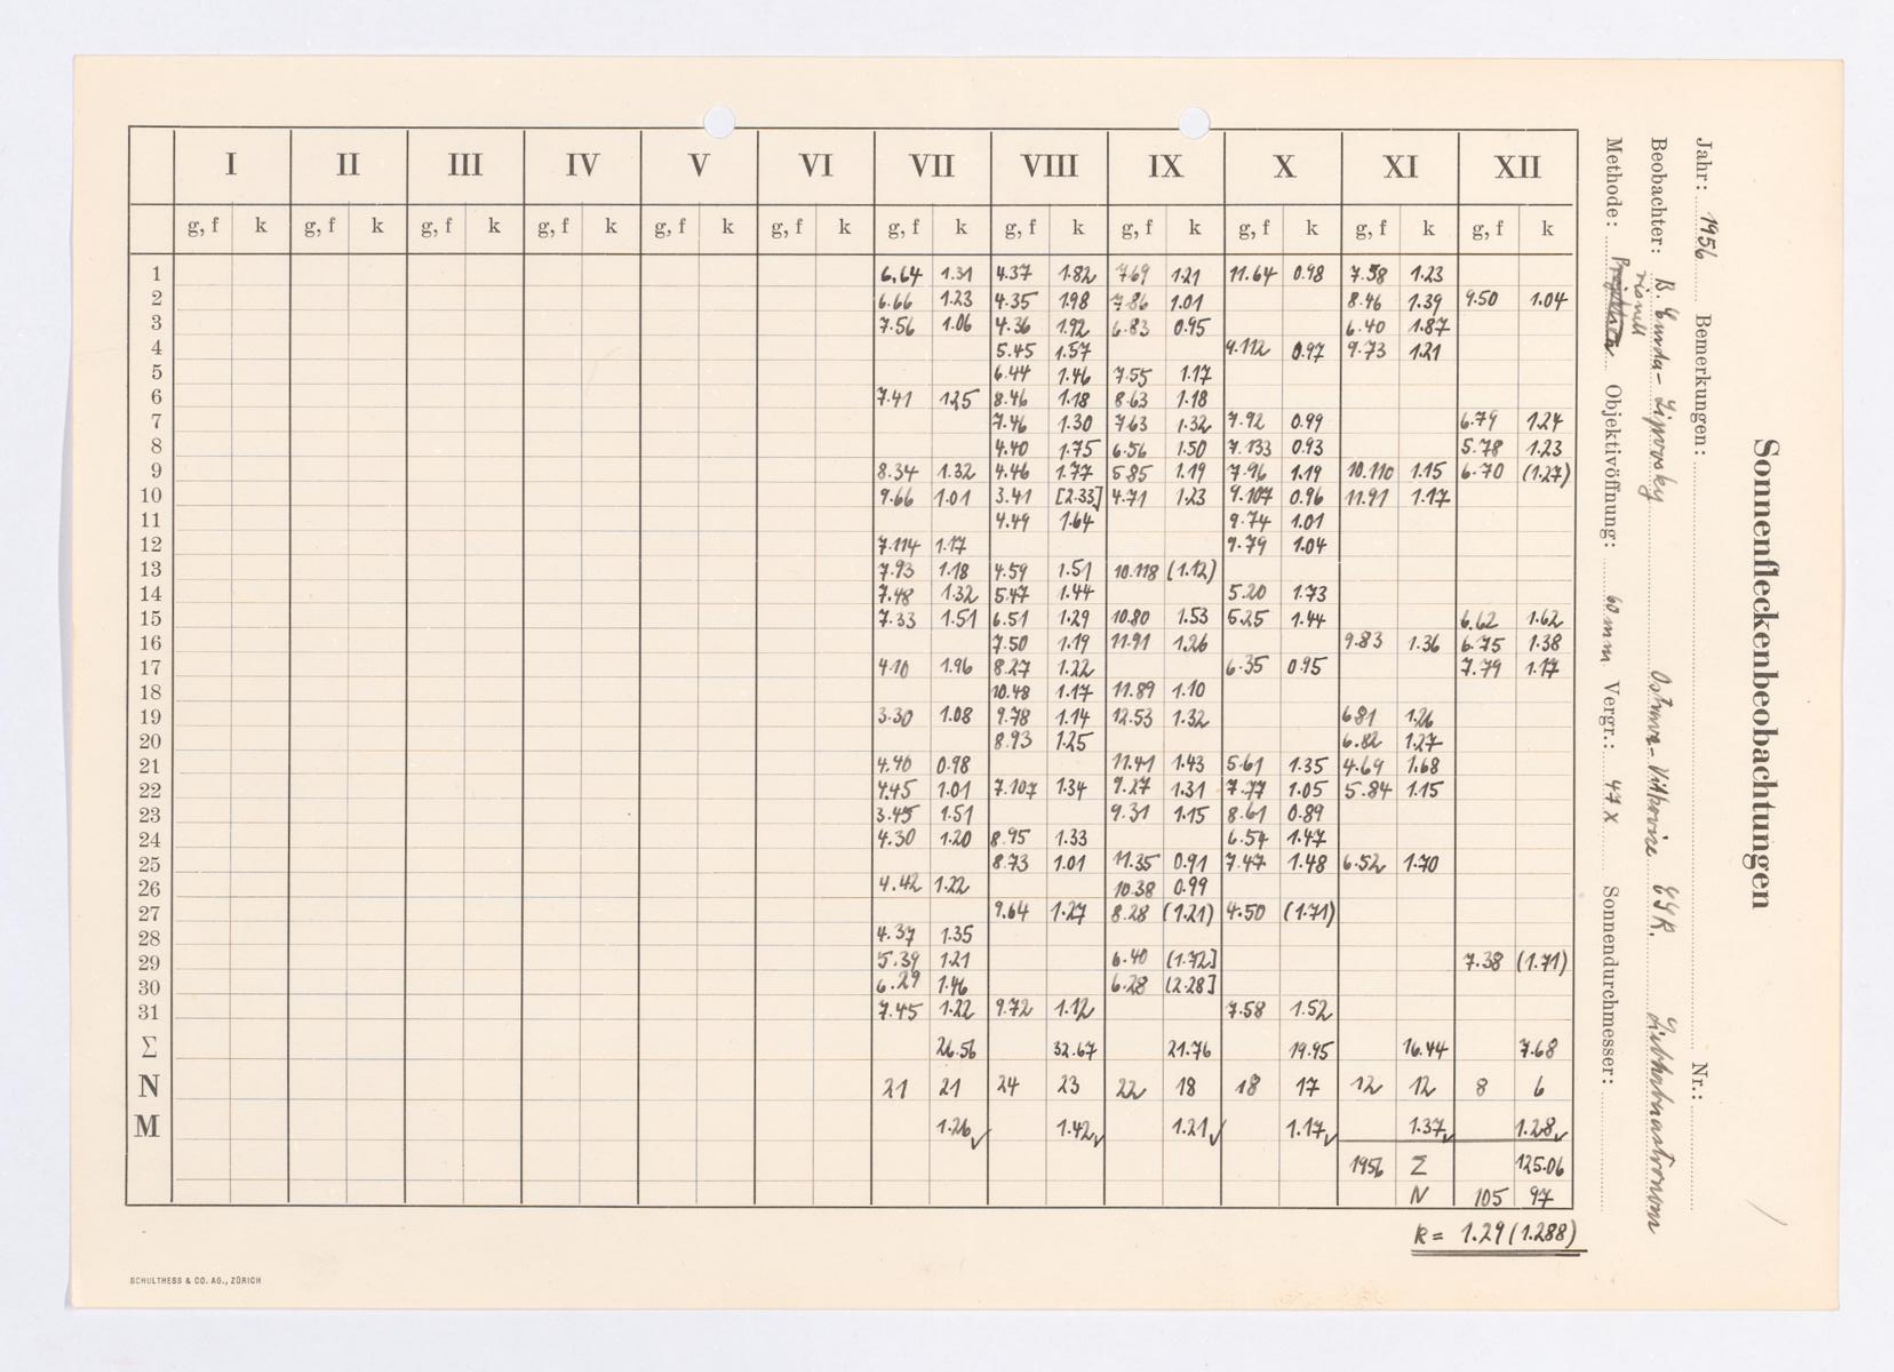 Sonnenfleckenbeobachtungen
Jahr: 1956 Bemerkungen: Nr.:
Beobachter: B. Ostrava-Vítkovice ČSR. Liebhaberastronom
Methode: visuell Objektivöffnung: 60 mm Vergr.: 47 x Sonnendurchmesser:
I II III IV V VI VII VIII IX X XI XII
g, f k g, f k g, f k g, f k g, f k g, f k g, f k g, f k g, f k g, f k g, f k g, f k
1 6.64 1.31 4.37 1.82 7.69 1.21 11.64 0.98 7.58 1.23
2 6.66 1.23 4.35 1.98 7.86 1.01 8.46 1.39 9.50 1.04
3 7.56 1.06 4.36 1.92 6.83 0.95 6.40 1.87
4 5.45 1.57 9.112 0.97 9.73 1.21
5 6.44 1.46 7.55 1.17
6 7.41 1.25 8.46 1.18 8.63 1.18
7 7.46 1.30 7.63 1.32 7.92 0.99 6.79 1.24
8 4.40 1.75 6.56 1.50 7.133 0.93 5.78 1.23
9 8.34 1.32 4.46 1.77 5.85 1.19 7.96 1.19 10.110 1.15 6.70 (1.27)
10 9.66 1.01 3.41 [2.33] 4.71 1.23 9.107 0.96 11.91 1.17
11 4.49 1.64 9.74 1.01
12 7.114 1.17 9.79 1.04
13 7.93 1.18 4.59 1.51 10.118 (1.12)
14 7.48 1.32 5.47 1.44 5.20 1.73
15 7.33 1.51 6.51 1.29 10.80 1.53 5.25 1.44 6.62 1.62
16 7.50 1.19 11.91 1.26 9.83 1.36 6.75 1.38
17 4.10 1.96 8.27 1.22 6.35 0.95 7.79 1.17
18 10.48 1.17 11.89 1.10
19 3.30 1.08 9.78 1.14 12.53 1.32 6.81 1.26
20 8.93 1.25 6.82 1.27
21 4.40 0.98 11.41 1.43 5.61 1.35 4.69 1.68
22 4.45 1.01 7.107 1.34 9.27 1.31 7.77 1.05 5.84 1.15
23 3.45 1.51 9.31 1.15 8.61 0.89
24 4.30 1.20 8.95 1.33 6.54 1.47
25 8.73 1.01 11.35 0.91 7.47 1.48 6.52 1.70
26 4.42 1.22 10.38 0.99
27 9.64 1.27 8.28 (1.21) 4.50 (1.71)
28 4.37 1.35
29 5.39 1.21 6.40 (1.72] 7.38 (1.71)
30 6.29 1.46 6.28 [2.28]
31 7.45 1.22 9.72 1.12 7.58 1.52
Σ 26.56 32.67 21.76 19.95 16.44 7.68
N 21 21 24 23 22 18 18 17 12 12 8 6
M 1.26✓ 1.42✓ 1.21✓ 1.17✓ 1.37✓ 1.28✓
1956 Σ 125.06
N 105 97
k = 1.29 (1.288)
SCHULTHESS & CO. AG., ZÜRICH